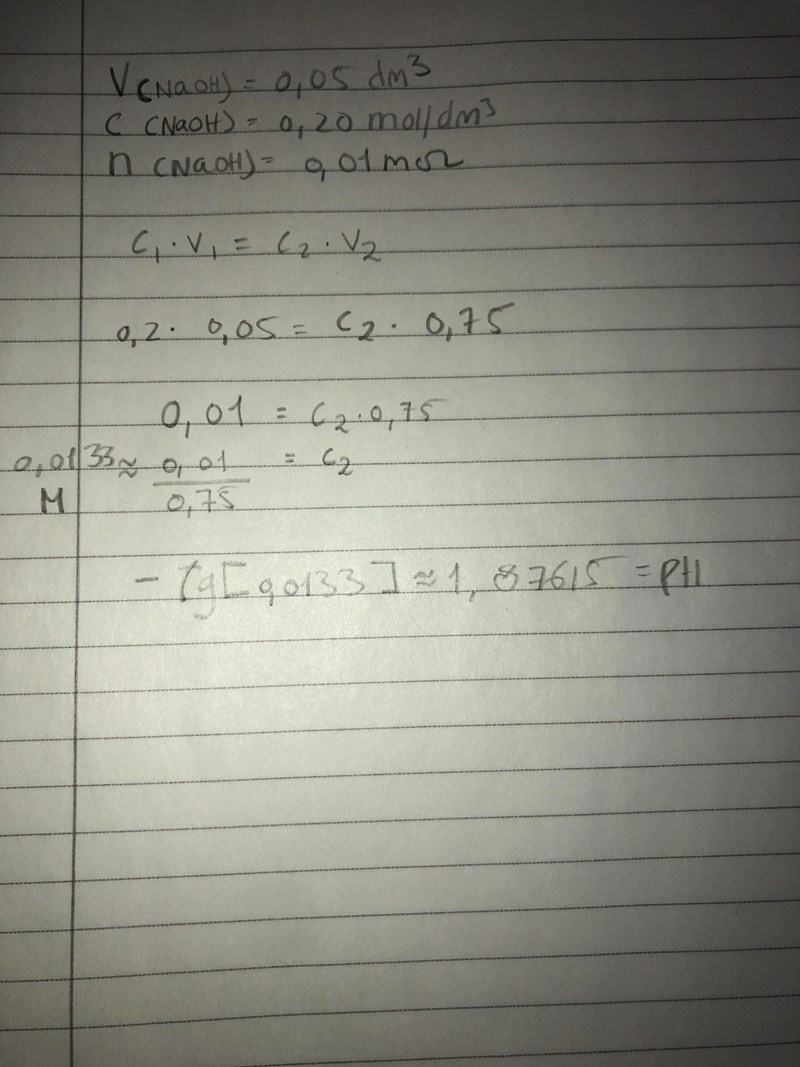 V(NaOH) = 0,05 dm³
C (NaOH) = 0,20 mol/dm³
n (NaOH) = 0,01 mol
C₁ · V₁ = C₂ · V₂
0,2 · 0,05 = C₂ · 0,75
0,01 = C₂ · 0,75
0,0133 ≈ 0,01 = C₂
M 0,75
- lg[0,0133] ≈ 1,87615 = PH